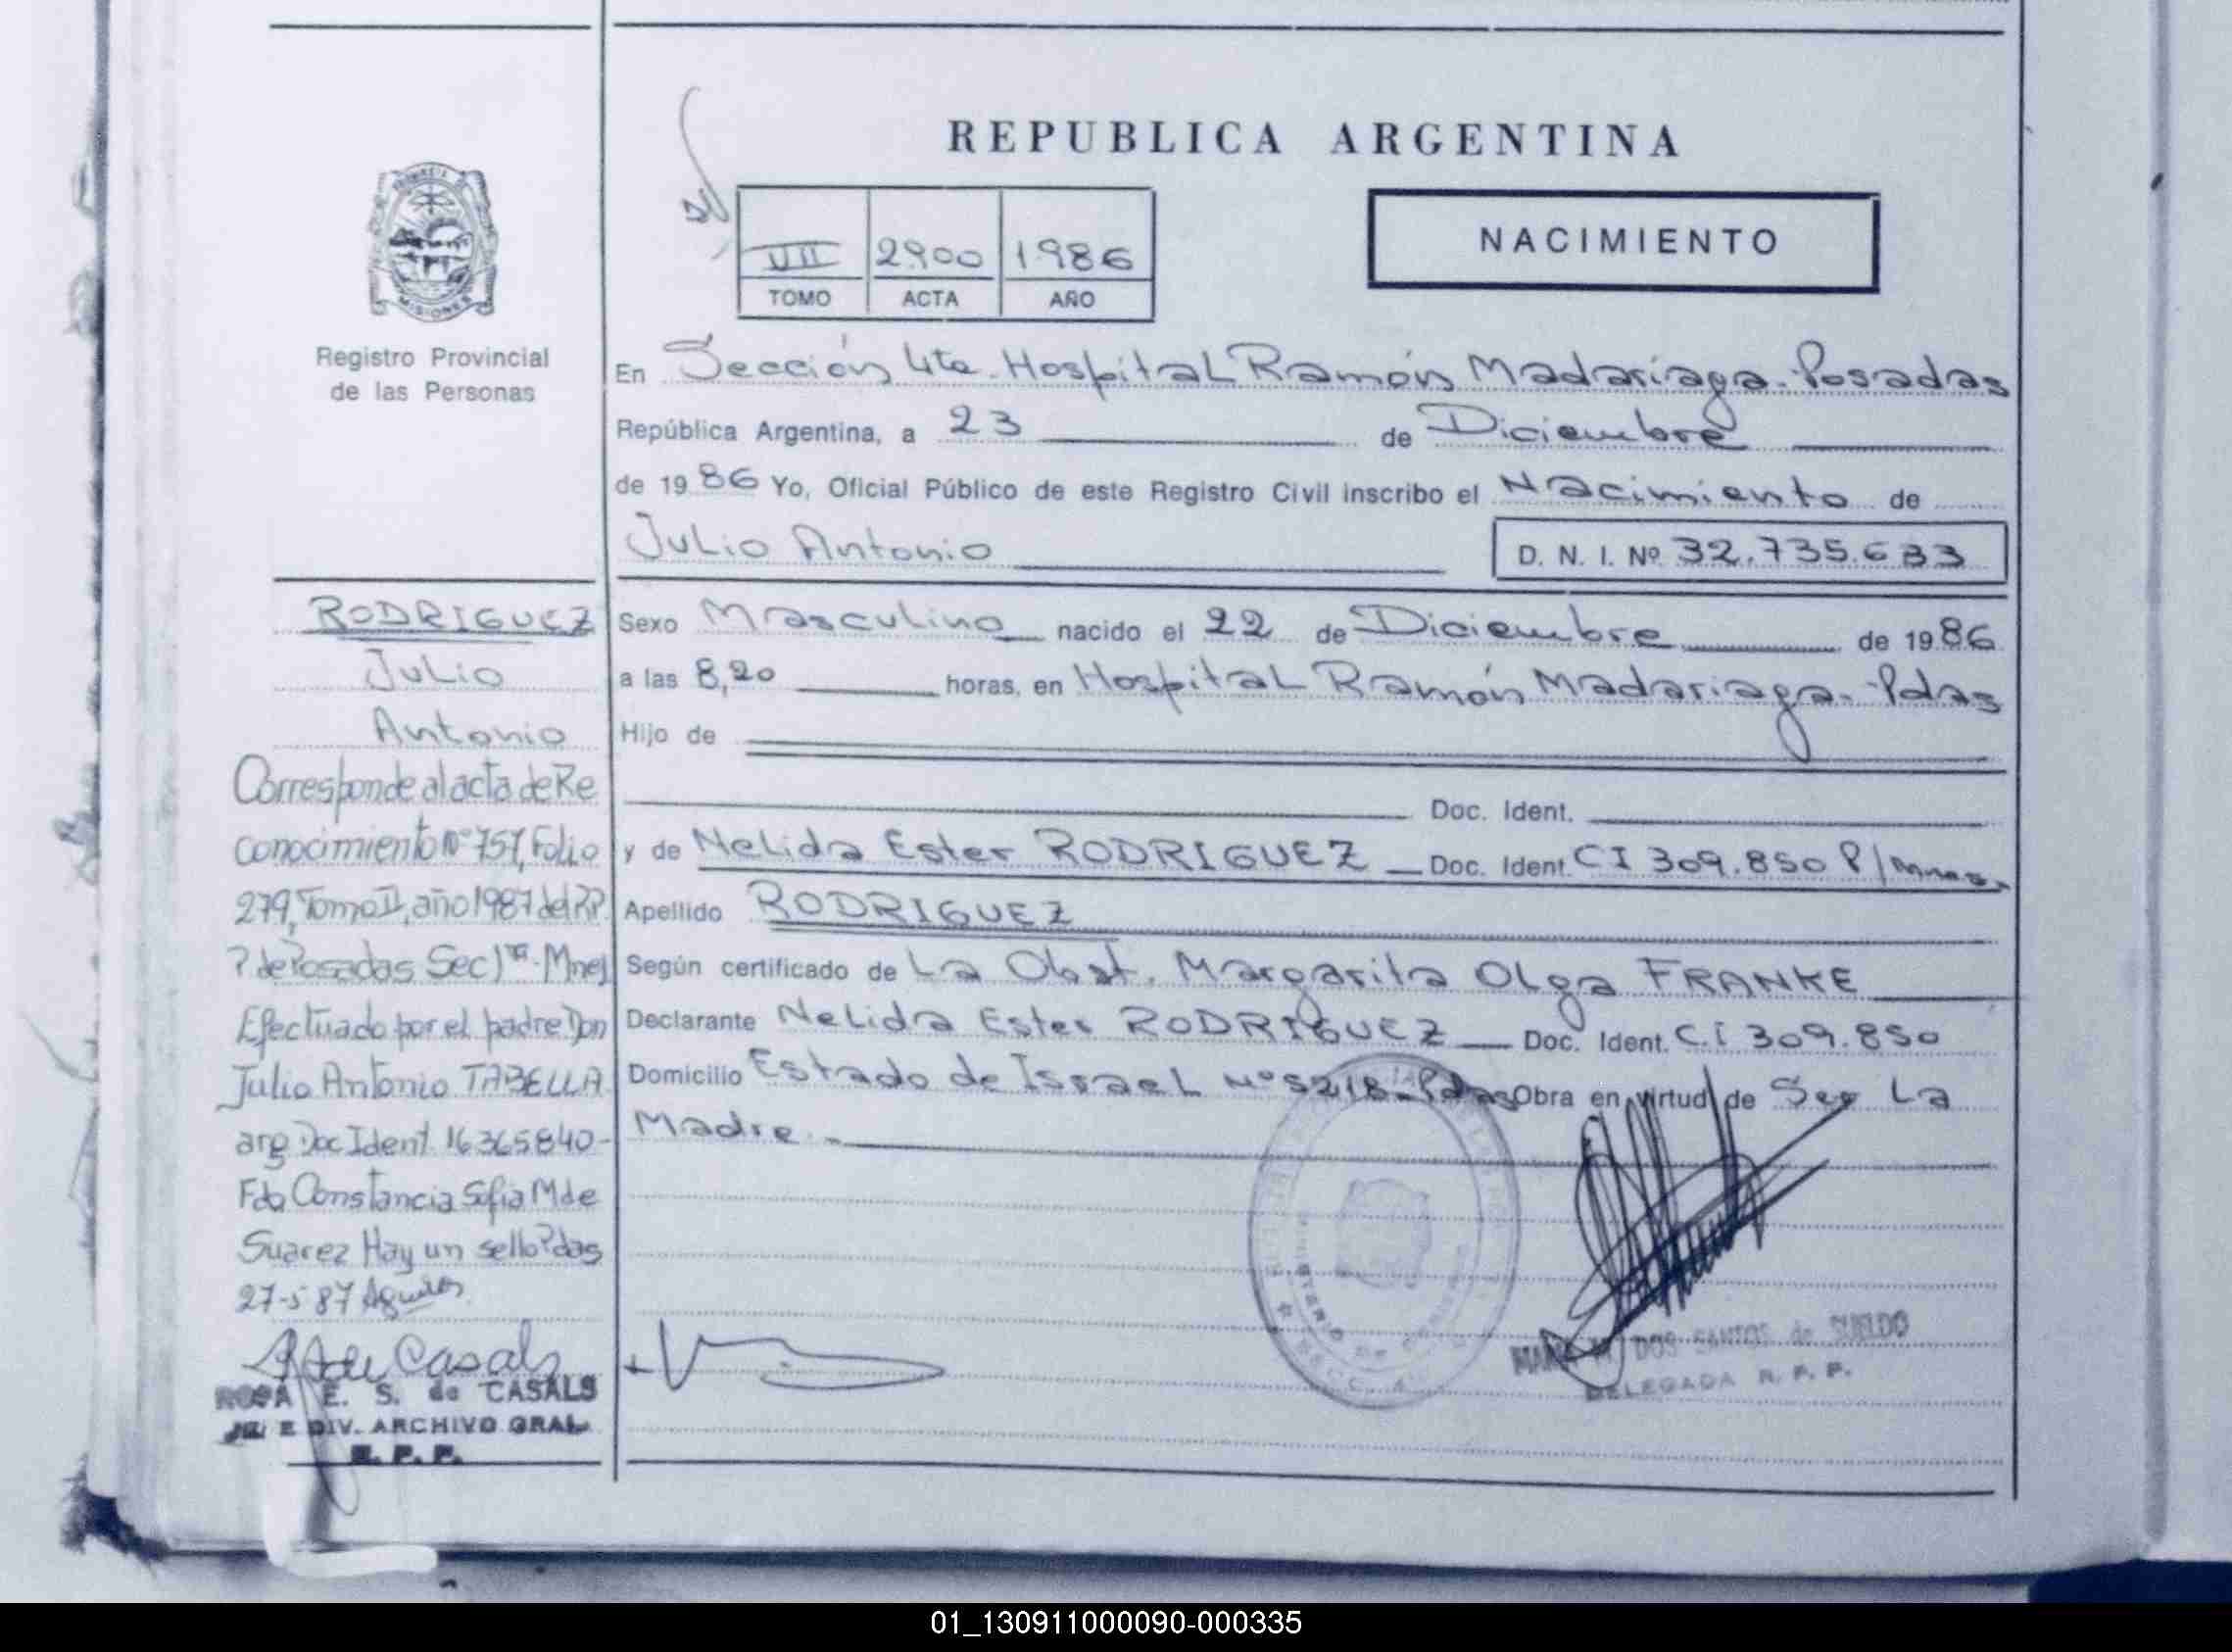 REPUBLICA ARGENTINA
NACIMIENTO
VII 2900 1986
TOMO ACTA AÑO
MISIONES
Registro Provincial
de las Personas
En Sección 4ta. Hospital Ramón Madariaga. Posadas
República Argentina, a 23 de Diciembre
de 1986 Yo, Oficial Público de este Registro Civil inscribo el Nacimiento de
Julio Antonio D. N. I. Nº 32.735.633
Sexo Masculino nacido el 22 de Diciembre de 1986
a las 8,20 horas, en Hospital Ramón Madariaga. Pdas
Hijo de
Doc. Ident.
y de Nelida Ester RODRIGUEZ Doc. Ident. CI 309.850 P/Mnes.
Apellido RODRIGUEZ
Según certificado de La Obst. Margarita Olga FRANKE
Declarante Nelida Ester RODRIGUEZ Doc. Ident. C.I 309.850
Domicilio Estado de Israel Nº 5218. Pdas Obra en virtud de Ser La
Madre.
RODRIGUEZ
Julio
Antonio
Corresponde al acta de Re
conocimiento Nº 757, Folio
279, Tomo II, año 1987 del R.P.
P de Posadas Sec 1ra. Mnes
Efectuado por el padre Don
Julio Antonio TABELLA
arg Doc Ident 16365840-
Fdo Constancia Sofia M de
Suarez Hay un sello Pdas
27-5 87
de Casals
ROSA E. S. de CASALS
DIV. ARCHIVO GRAL
R. P. P.
DOS SANTOS de SUELDO
DELEGADA R. P. P.
01_130911000090-000335